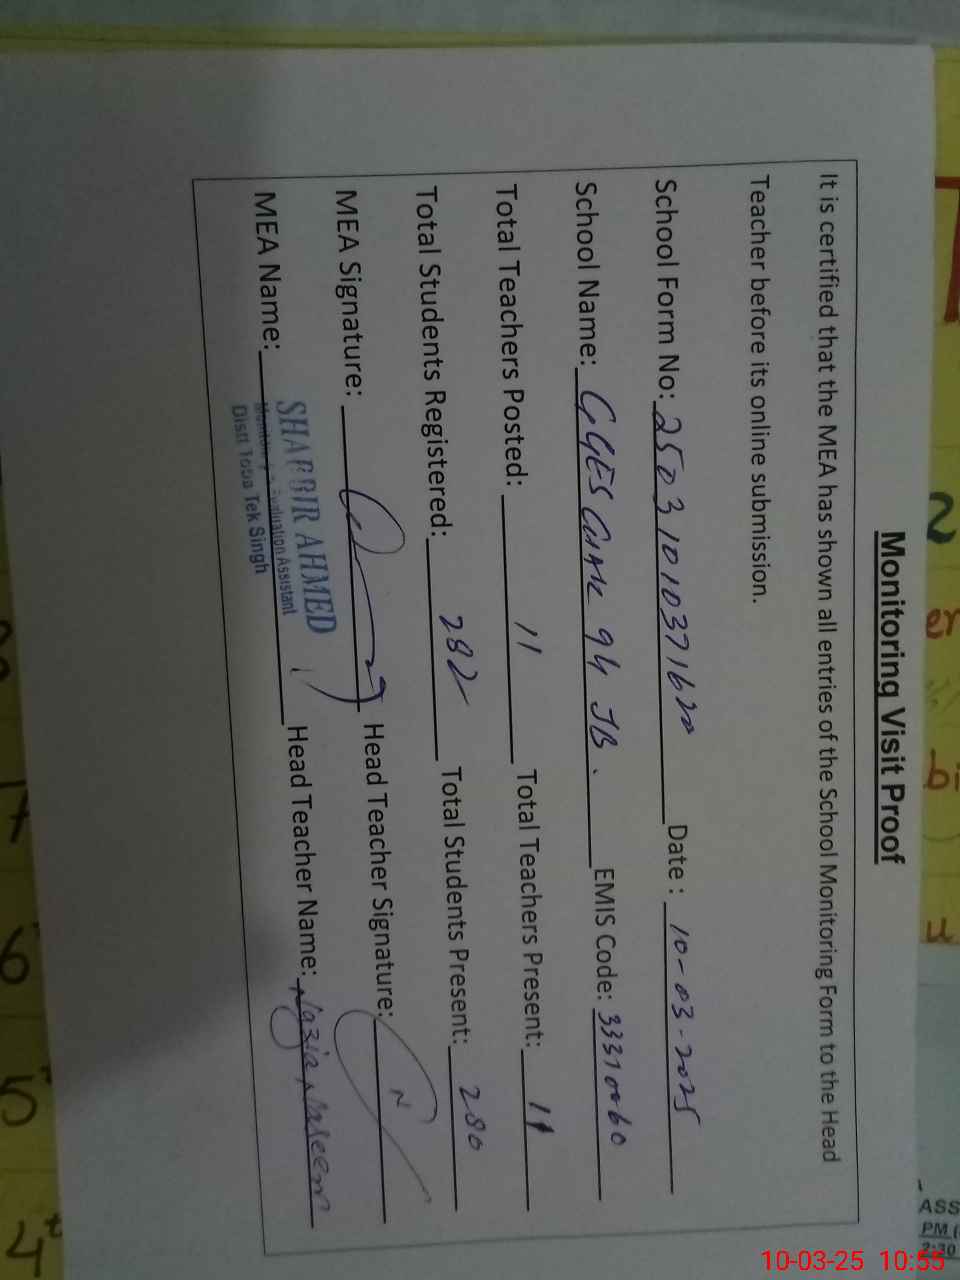 Monitoring Visit Proof
It is certified that the MEA has shown all entries of the School Monitoring Form to the Head
Teacher before its online submission.
School Form No: 25031010371620 Date : 10-03-2025
School Name: GGES CHAK 94 JB. EMIS Code: 33310060
Total Teachers Posted: 11 Total Teachers Present: 11
Total Students Registered: 282 Total Students Present: 280
MEA Signature: Head Teacher Signature: N
MEA Name: SHABBIR AHMED Head Teacher Name: Nazia Naseem
Monitoring & Evaluation Assistant
Distt Toba Tek Singh
er
bi
u
7
6
5
4t
ASS
PM (
2:30
10-03-25 10:55